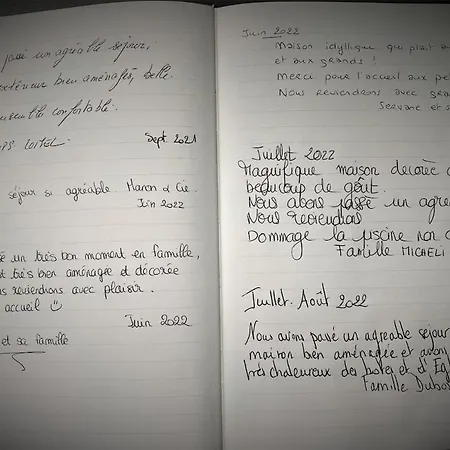 passé un agréable séjour,
extérieur bien aménagés, belle
ensemble confortable.
Sept. 2021
séjour si agréable. Manon & Cie.
Juin 2022
un très bon moment en famille,
très bien aménagée et décorée
reviendrons avec plaisir.
accueil ☺
Juin 2022
et sa famille
Juin 2022
Maison idyllique qui plait
et aux grands !
Merci pour l'accueil aux
Nous reviendrons avec
Servane et
Juillet 2022
Magnifique maison décorée
beaucoup de goût.
Nous avons passé un
Nous reviendrons
Dommage la piscine non
Famille MICHELI
Juillet. Août 2022
Nous avons passé un agréable séjour
maison bien aménagée et avons
très chaleureux des hotes et d'
Famille